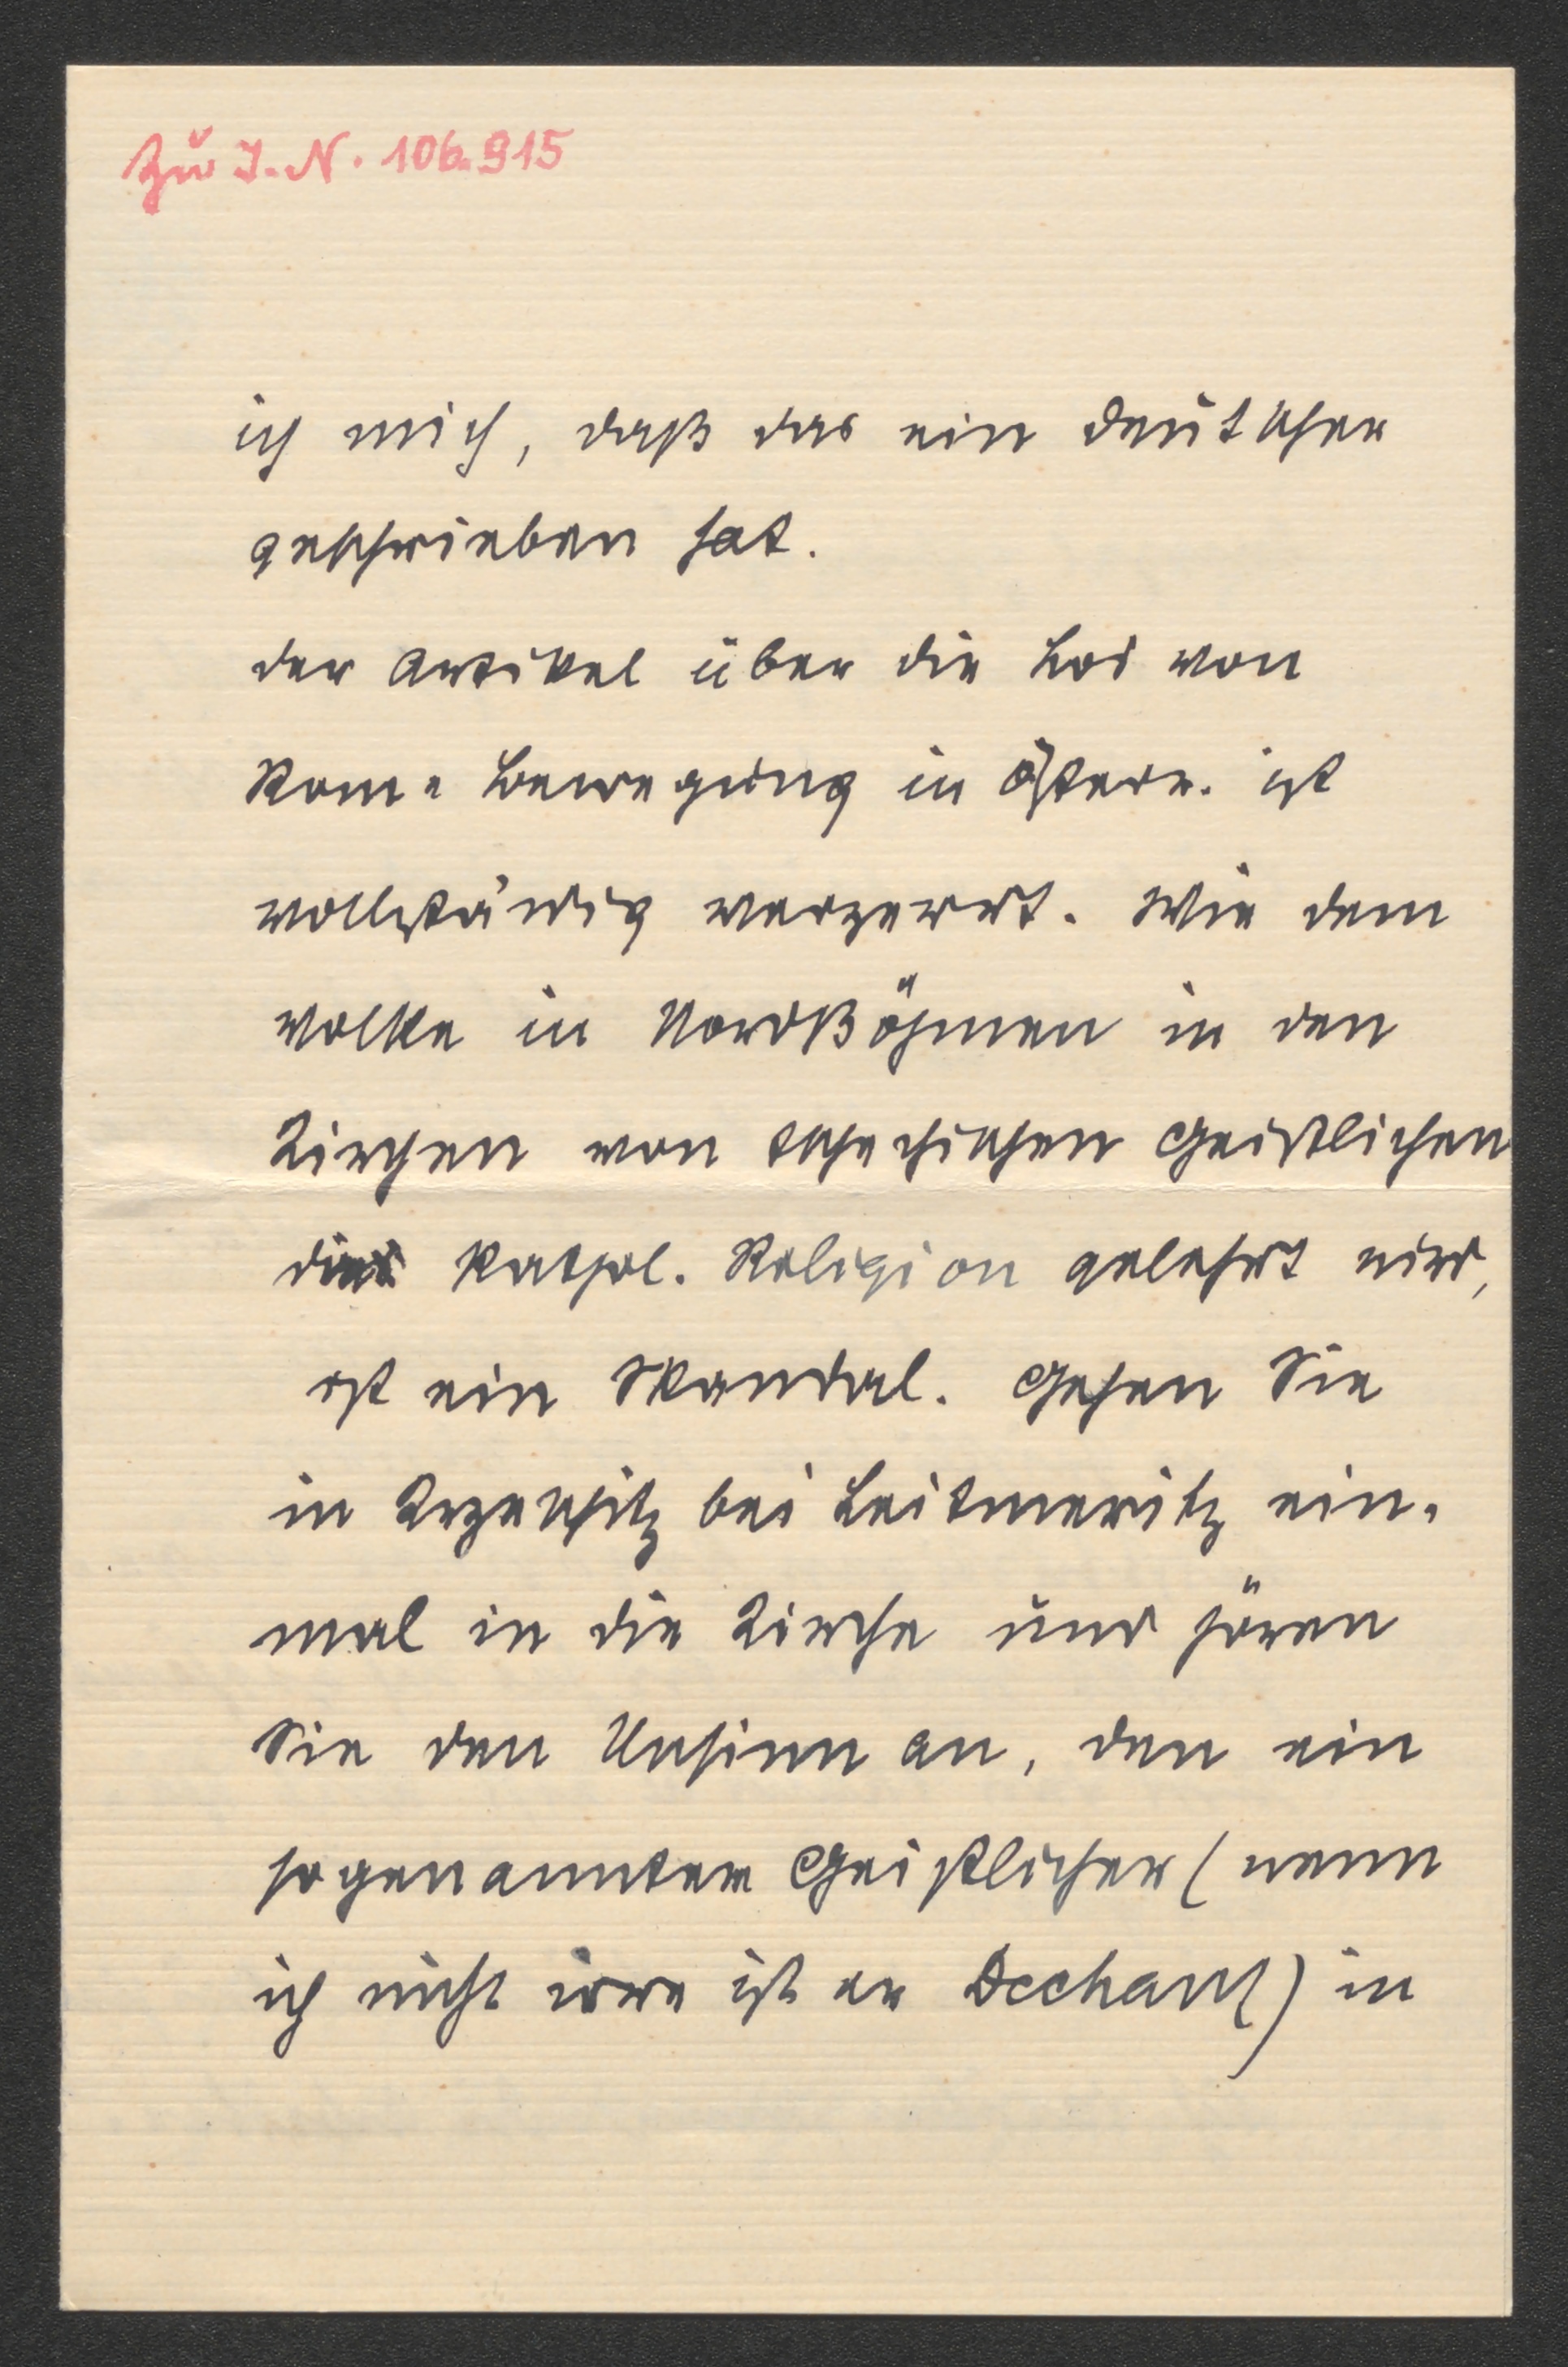 Zu I.N. 106.915
ich mich, daß das ein Deutscher
geschrieben hat.
Der Artikel über die Los von
Rom-Bewegung in Österr. ist
vollständig verzerrt. Wie dem
Volke in Nordböhmen in den
Kirchen von tschechischen Geistlichen
die kathol. Religion gelehrt wird,
ist ein Skandal. Gehen Sie
in bei Leitmeritz ein-
mal in die Kirche und hören
Sie den Unsinn an, den ein
sogenannter Geistlicher (wenn
ich nicht irre ist er Dechant) in